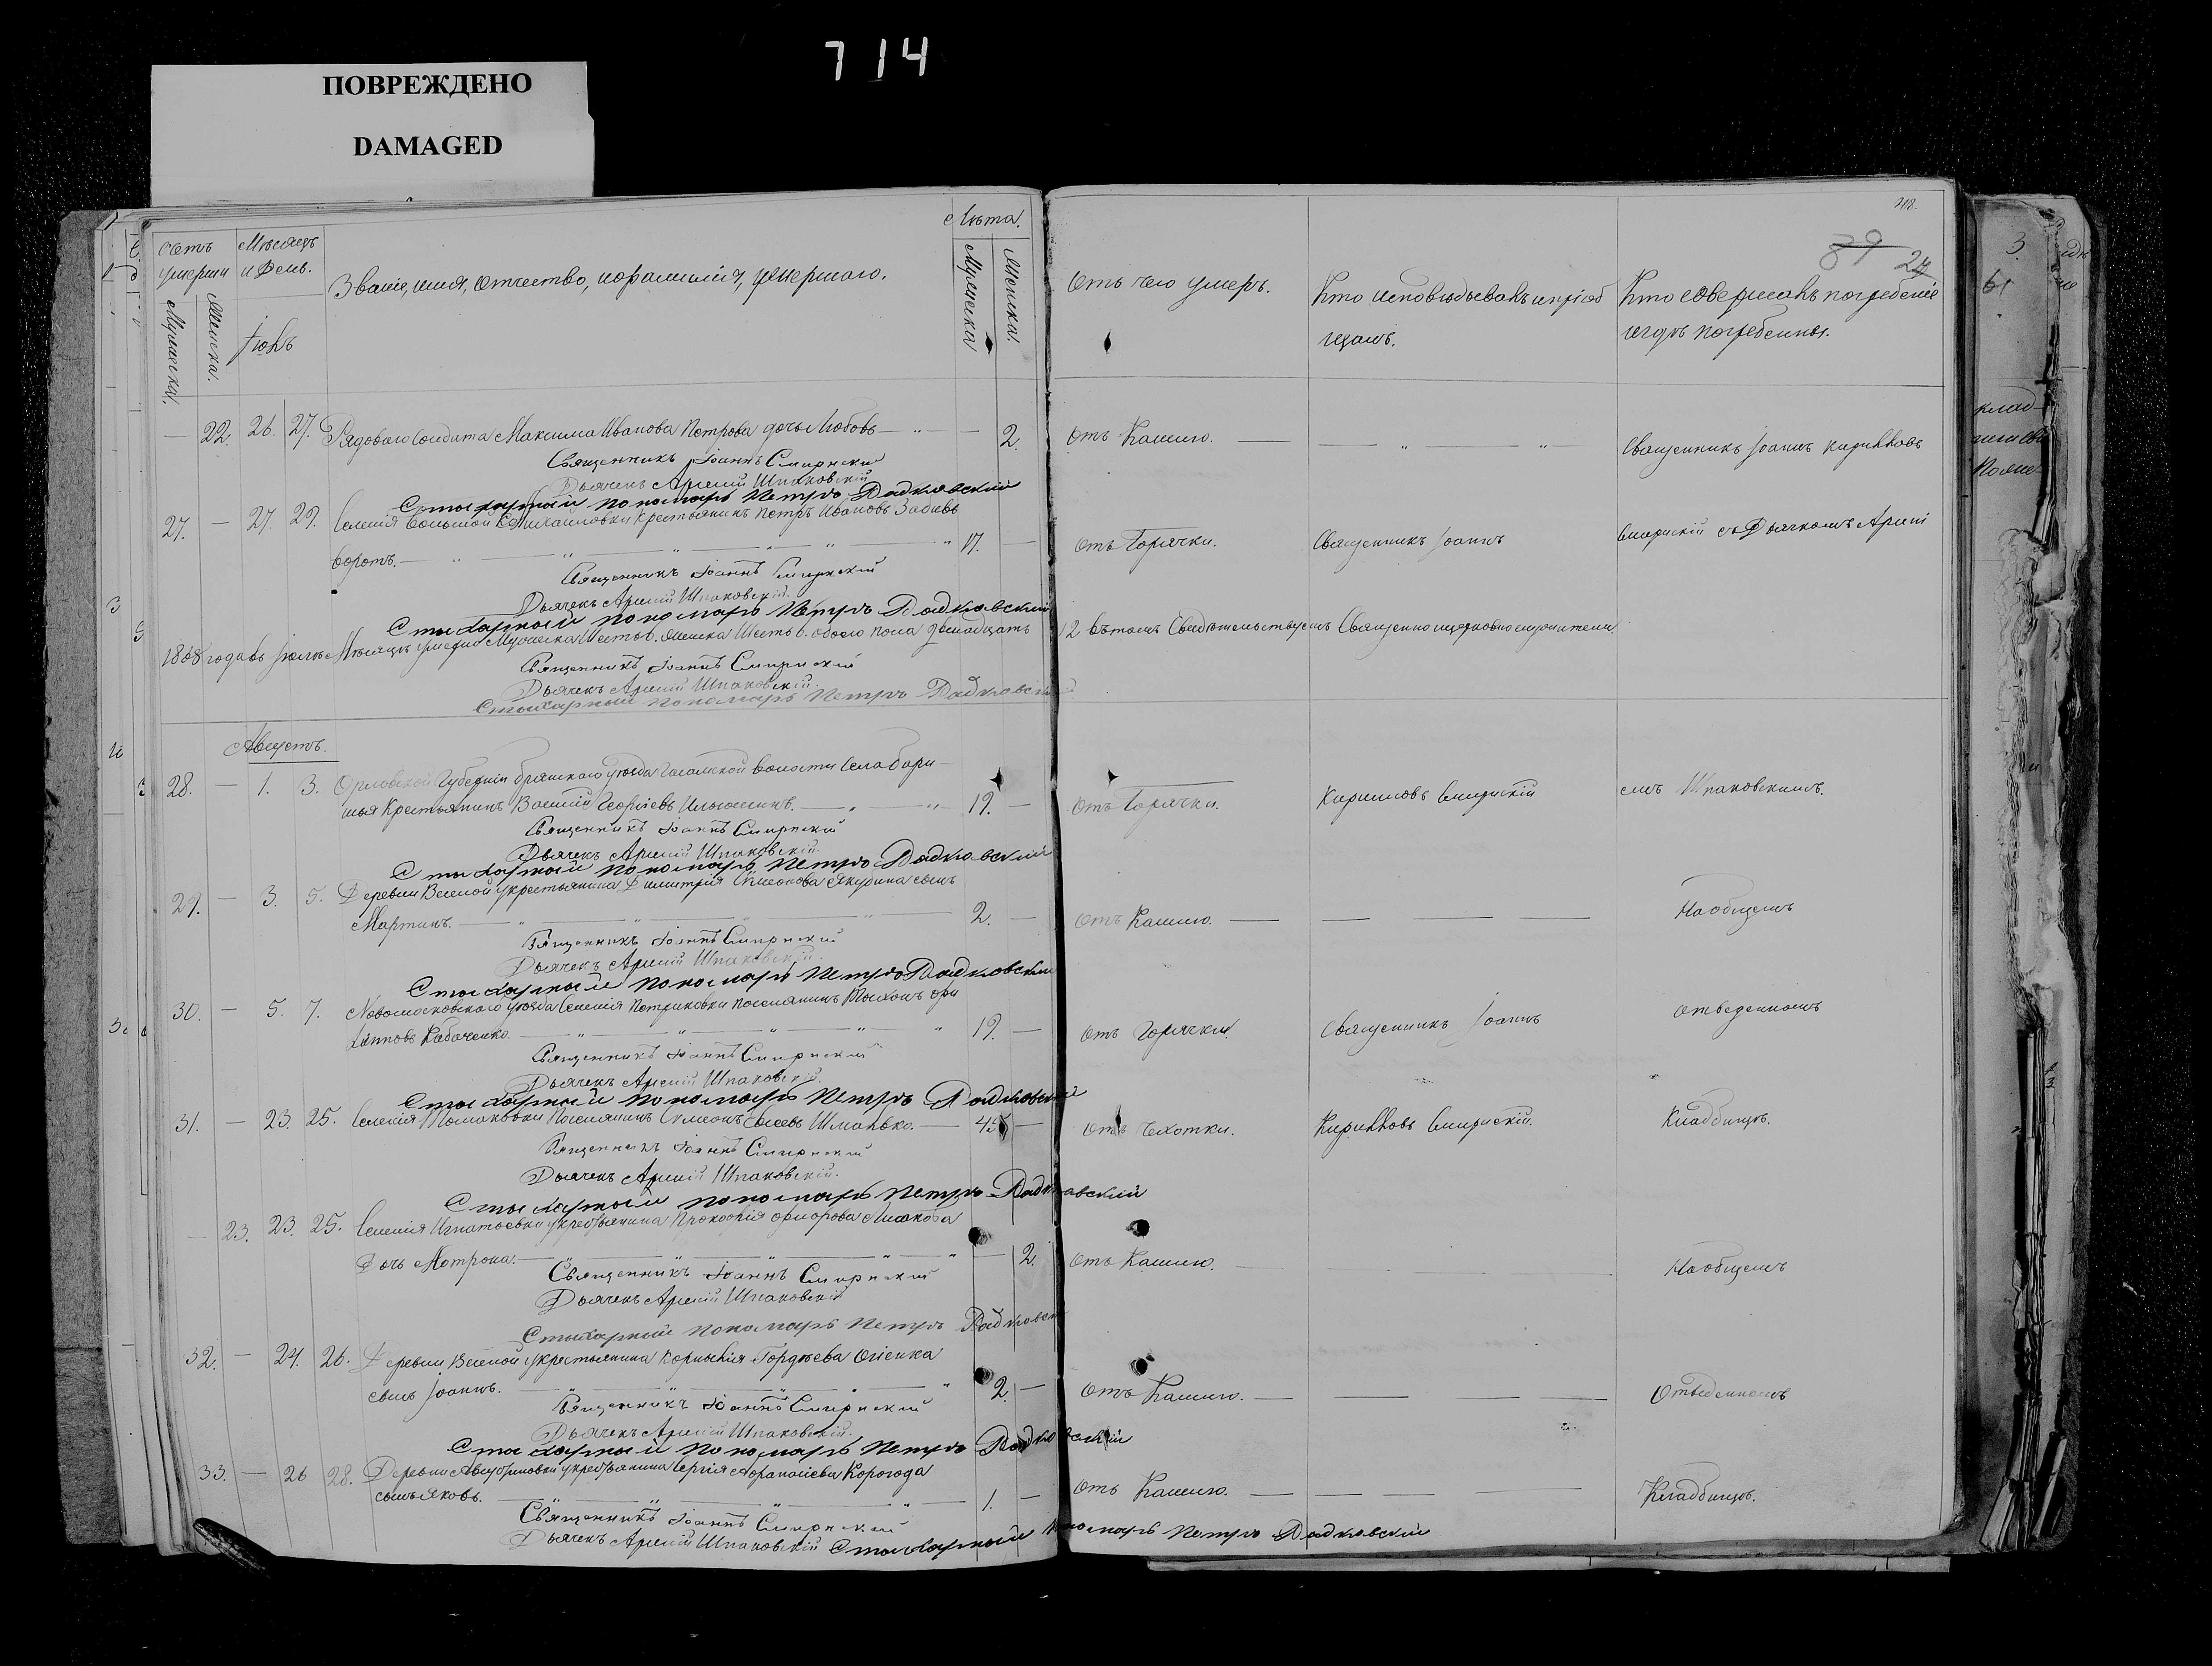 714
ПОВРЕЖДЕНО
DAMAGED
218.
39 24
Счетъ умерши
Мужеска.
Женска.
Мѣсяцъ и День.
Іюль
Званіе, имя, отчество, и фамилія, умершаго.
Лѣта.
Мужеска
Женска.
Отъ чего умеръ.
Кто исповѣдывалъ и пріоб
щалъ.
Кто совершалъ погребеніе
и гдѣ погребены.
— 22. 26. 27. Рядоваго Солдата Максима Иванова Петрова дочь Любовь — 2. Отъ Кашлю. Священникъ Іоаннъ Кирилловъ
Священникъ Іоаннъ Смирнскій
Дьячекъ Арсеній Шпаковскій
Стихарный пономарь Петръ Радкевскій
27. — 27. 29. Селенія Большой Михаиловки Крестьянинъ Петръ Ивановъ Забавь
воротъ. — 17. — Отъ Горячки. Священникъ Іоаннъ Смирнскій съ Дьячкомъ Арсені
Священникъ Іоаннъ Смирнскій
Дьячекъ Арсеній Шпаковскій.
Стихарный пономарь Петръ Радкевскій
1868 года въ Іюлѣ Мѣсяцѣ умерло Мужеска Шесть 6. Женска Шесть 6. обоего пола двенадцать 12 въ томъ Свидѣтельствуемъ Священно церковно служители.
Священникъ Іоаннъ Смирнскій
Дьячекъ Арсеній Шпаковскій.
Стихарный пономарь Петръ Радкевскій
Августъ.
28. — 1. 3. Орловской Губерніи Брянскаго уѣзда волости Села
Крестьянинъ Василій Георгіевъ — 19. — Отъ Горячки. Кирилловъ Смирнскій емъ Шпаковскимъ.
Священникъ Іоаннъ Смирнскій
Дьячекъ Арсеній Шпаковскій.
Стихарный пономарь Петръ Радкевскій
29. — 3. 5. Деревни Веселой у крестьянина Димитрія Симеонова Якубина сынъ
Мартинъ. — 2. — Отъ Кашлю. — На общемъ
Священникъ Іоаннъ Смирнскій
Дьячекъ Арсеній Шпаковскій.
Стихарный пономарь Петръ Радкевскій
30. — 5. 7. Новомосковскаго уѣзда Селенія Петриковки поселянинъ Тихонъ Фи
липповъ Кабаченко. — 19. — Отъ Горячки. Священникъ Іоаннъ отведенномъ
Священникъ Іоаннъ Смирнскій
Дьячекъ Арсеній Шпаковскій.
Стихарный пономарь Петръ Радкевскій
31. — 23. 25. Селенія Томаковки Поселянинъ Симеонъ Шманько. — — Отъ Чахотки. Кирилловъ Смирнскій. Кладбищѣ.
Священникъ Іоаннъ Смирнскій
Дьячекъ Арсеній Шпаковскій.
Стихарный пономарь Петръ Радкевскій
— 23. 23. 25. Селенія Игнатьевки у крестьянина Прокофія
Дочь Мотрона. — 2. Отъ Кашлю. На общемъ
Священникъ Іоаннъ Смирнскій
Дьячекъ Арсеній Шпаковскій
Стихарный пономарь Петръ Радкевск
32. — 24. 26. Деревни Веселой у крестьянина Корнилія Гордѣева Огіенка
сынъ Іоаннъ. — 2. — Отъ Кашлю. — Отведенномъ
Священникъ Іоаннъ Смирнскій
Дьячекъ Арсеній Шпаковскій.
Стихарный пономарь Петръ Радкевскій
33. — 26 28. Деревни у крестьянина Сергія Афанасіева Корогода
сынъ Яковъ. — 1. — Отъ Кашлю. — Кладбищѣ.
Священникъ Іоаннъ Смирнскій
Дьячекъ Арсеній Шпаковскій Стихарный пономарь Петръ Радкевскій